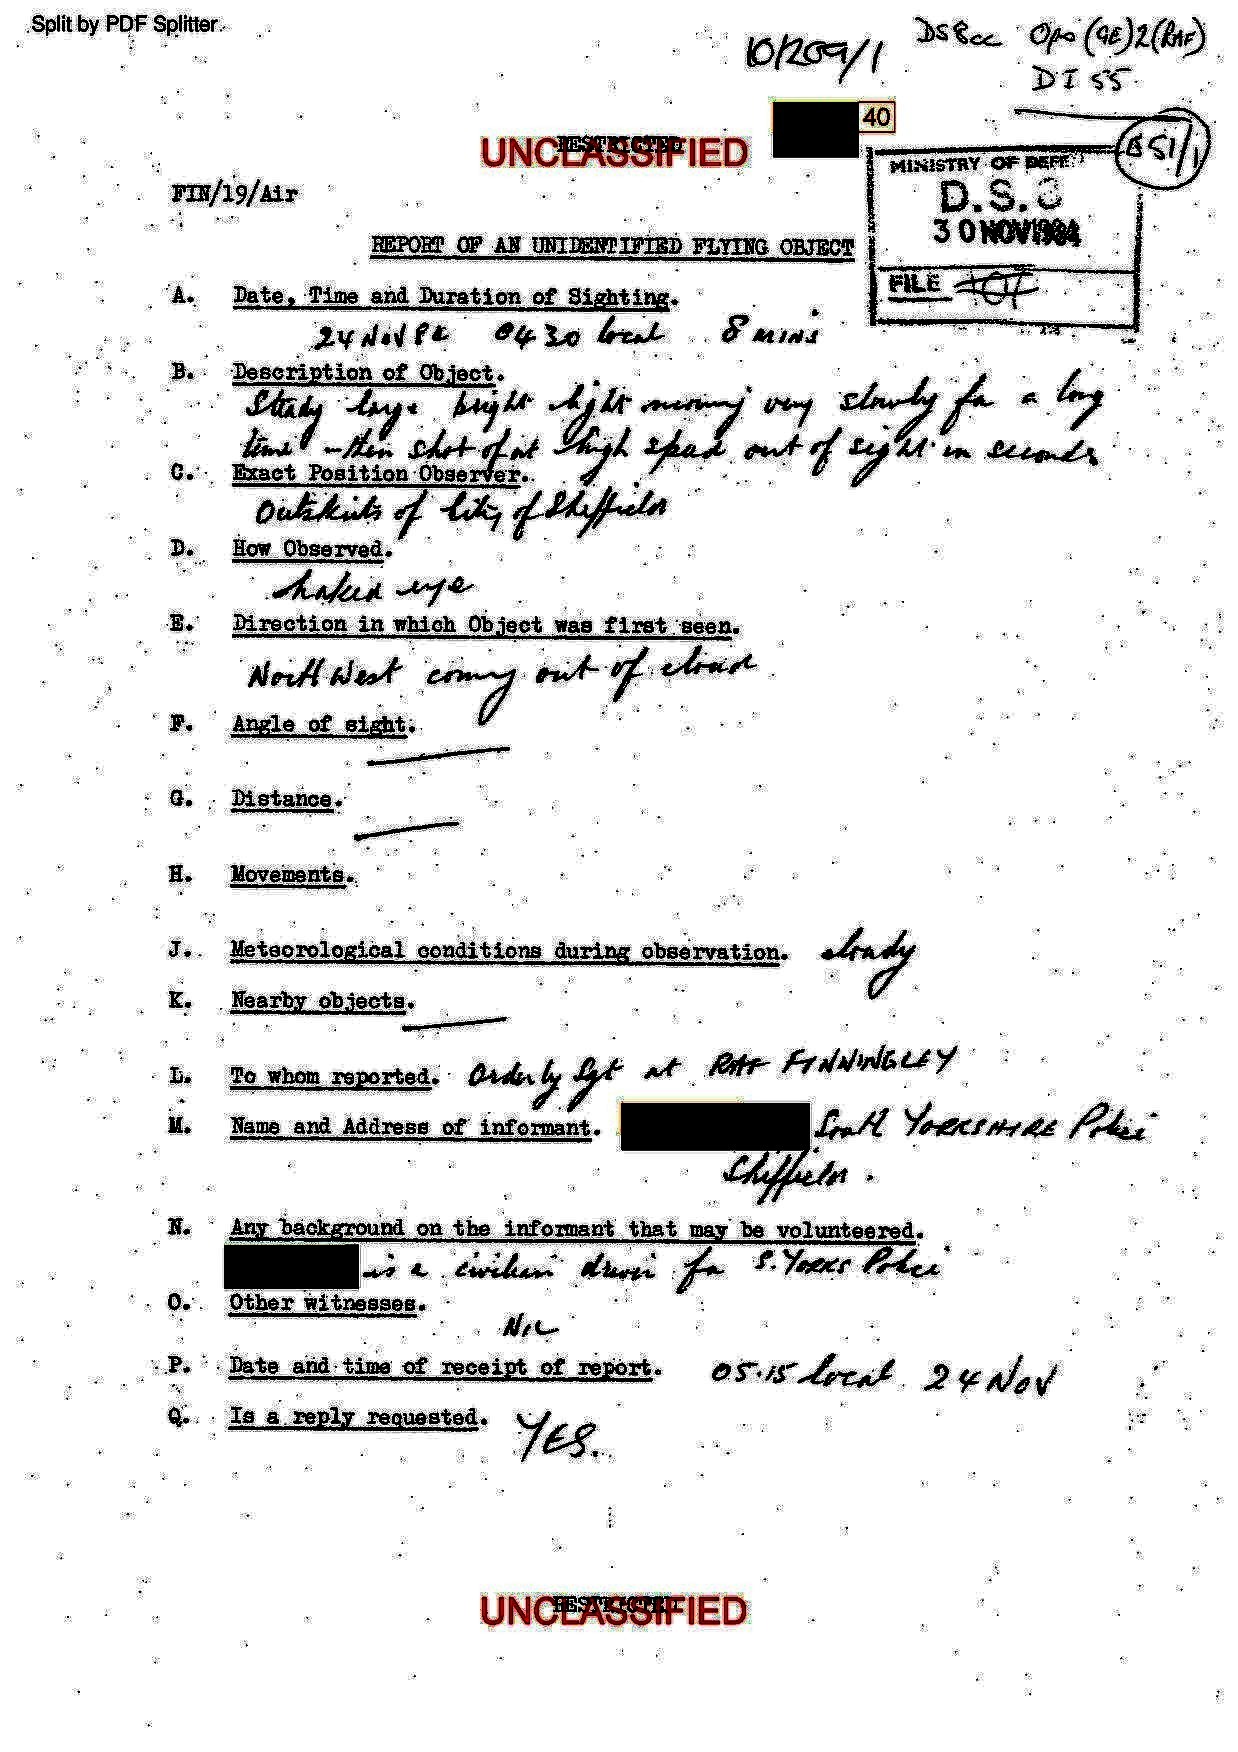 Split by PDF Splitter
10/209/1
DS8cc Ops (GE)2(RAF)
DI 55
40
UNCLASSIFIED
RESTRICTED
MINISTRY OF DEFE
D.S.8
30 NOV 1984
FILE
FIN/19/Air
REPORT OF AN UNIDENTIFIED FLYING OBJECT
A. Date, Time and Duration of Sighting.
24 Nov 84 0430 local 8 MINS
B. Description of Object.
Steady large bright light moving very slowly for a long
time - then shot of at high speed out of sight in seconds
C. Exact Position Observer.
Outskirts of City of Sheffield
D. How Observed.
naked eye
E. Direction in which Object was first seen.
North West coming out of cloud
F. Angle of sight.
G. Distance.
H. Movements.
J. Meteorological conditions during observation. cloudy
K. Nearby objects.
L. To whom reported. Orderly Sgt at RAF FINNINGLEY
M. Name and Address of informant. South YORKSHIRE Police
Sheffield.
N. Any background on the informant that may be volunteered.
is a civilian driver for S. YORKS Police
O. Other witnesses.
NIL
P. Date and time of receipt of report. 05.15 local 24 Nov
Q. Is a reply requested. YES.
UNCLASSIFIED
RESTRICTED